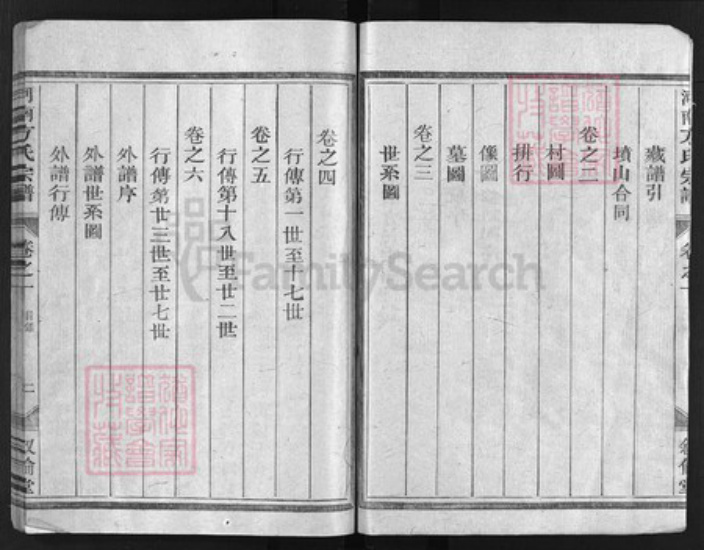 藏譜引
墳山合同
卷之二
村圖
排行
像圖
墓圖
卷之三
世系圖
卷之四
行傳第一世至十七世
卷之五
行傳第十八世至廿二世
卷之六
行傳第廿三世至廿七世
外譜序
外譜世系圖
外譜行傳
方氏宗譜
卷之一
目錄
二
FamilySearch